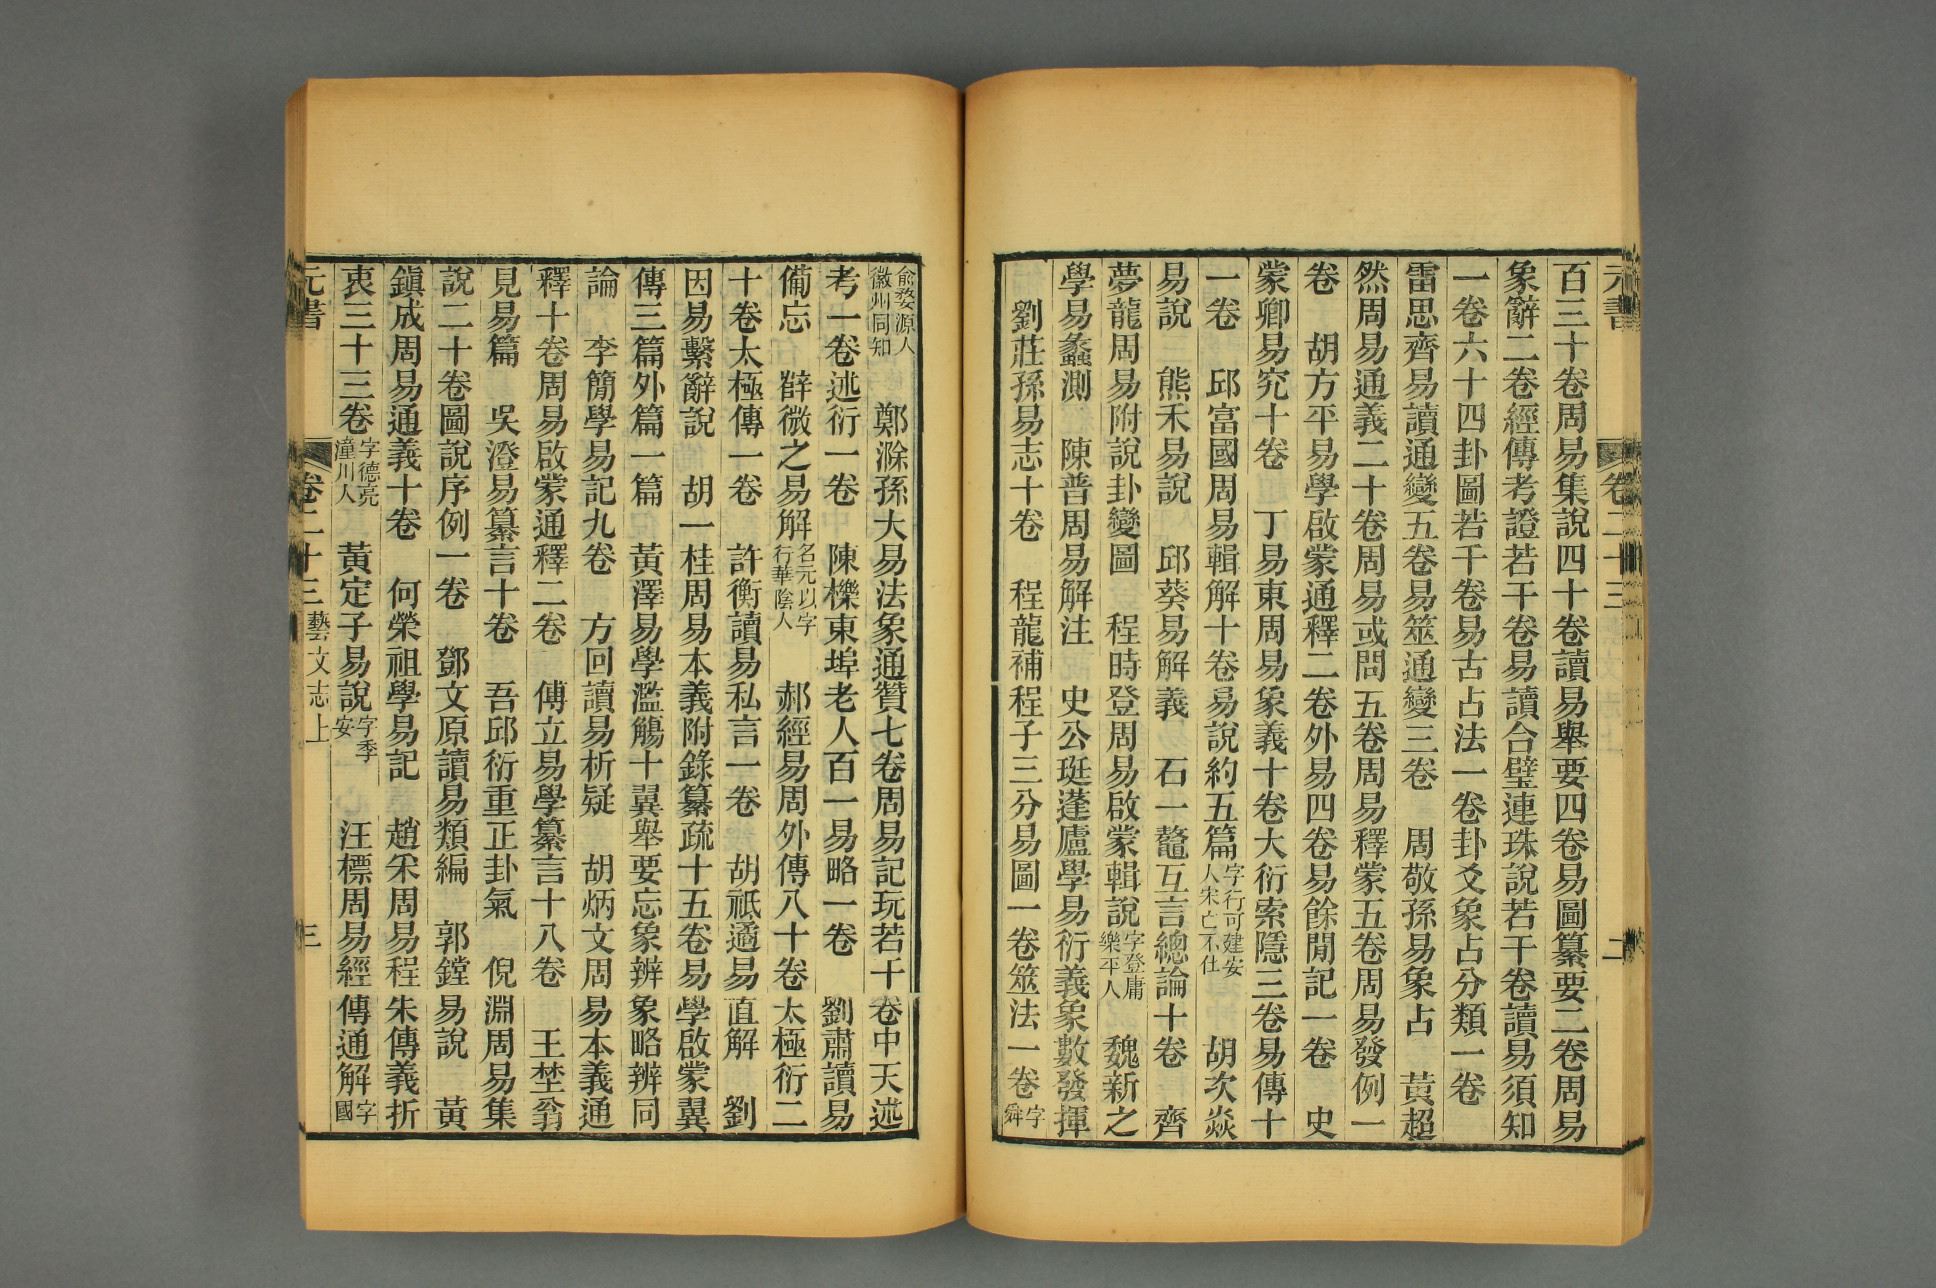 元書 卷二十三 二
百三十卷周易集說四十卷讀易舉要四卷易圖纂要二卷周易
象辭二卷經傳考證若干卷易讀合璧連珠說若干卷讀易須知
一卷六十四卦圖若干卷易古占法一卷卦爻象占分類一卷
雷思齊易讀通變五卷易筮通變三卷 周敬孫易象占 黃超
然周易通義二十卷周易或問五卷周易釋蒙五卷周易發例一
卷 胡方平易學啟蒙通釋二卷外易四卷易餘閒記一卷 史
蒙卿易究十卷 丁易東周易象義十卷大衍索隱三卷易傳十
一卷 邱富國周易輯解十卷易說約五篇字行可建安人宋亡不仕 胡次焱
易說 熊禾易說 邱葵易解義 石一鼇互言總論十卷 齊
夢龍周易附說卦變圖 程時登周易啟蒙輯說字登庸樂平人 魏新之
學易蠡測 陳普周易解注 史公珽蓬廬學易衍義象數發揮
劉莊孫易志十卷 程龍補程子三分易圖一卷筮法一卷字舜
俞婺源人徽州同知 鄭滁孫大易法象通贊七卷周易記玩若干卷中天述
考一卷述衍一卷 陳櫟東埠老人百一易略一卷 劉肅讀易
備忘 辥微之易解名元以字行華陰人 郝經易周外傳八十卷太極衍二
十卷太極傳一卷 許衡讀易私言一卷 胡祇遹易直解 劉
因易繫辭說 胡一桂周易本義附錄纂疏十五卷易學啟蒙翼
傳三篇外篇一篇 黃澤易學濫觴十翼舉要忘象辨象略辨同
論 李簡學易記九卷 方回讀易析疑 胡炳文周易本義通
釋十卷周易啟蒙通釋二卷 傅立易學纂言十八卷 王埜翁
見易篇 吳澄易纂言十卷 吾邱衍重正卦氣 倪淵周易集
說二十卷圖說序例一卷 鄧文原讀易類編 郭鏜易說 黃
鎮成周易通義十卷 何榮祖學易記 趙采周易程朱傳義折
衷三十三卷字德亮潼川人 黃定子易說字季安 汪標周易經傳通解字國
元書 卷二十三 藝文志上 三